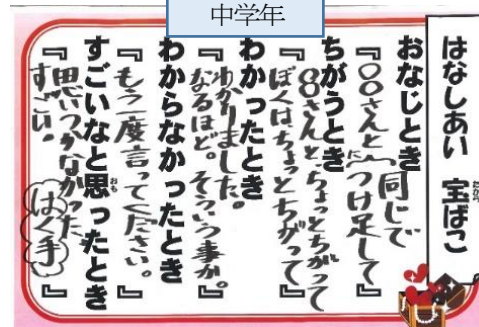 中学年
はなしあい 宝ばこ
たから
おなじとき
『〇〇さんと同じで
つけ足して』
ちがうとき
『〇〇さんと、ちょっとちがって
ぼくは、ちょっとちがって』
わかったとき
『わかりました。
なるほど。そういう事か。』
わからなかったとき
『もう一度言ってください。』
すごいなと思ったとき
おも
『思いつかなかった
すごい。 はく手』